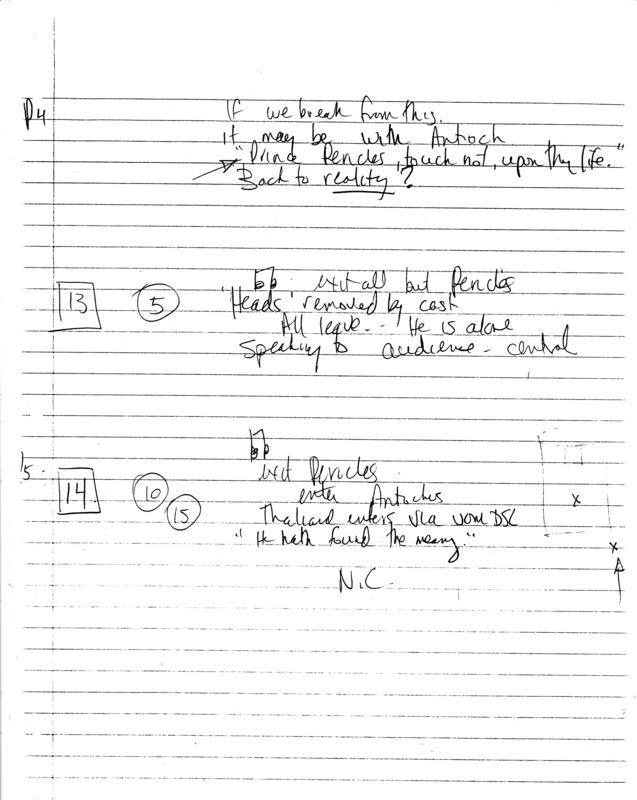 P4
If we break from this.
it may be with Antioch
"Prince Pericles, touch not, upon thy life."
Back to reality?
13 5 exit all but Pericles
'Heads' removed by cast
All leave... He is alone
Speaking to audience - central
5.
14 10 15
exit Pericles
enter Antiochus
Thaliard enters via vom DSL
"He hath found the meaning"
N.C.
x
x